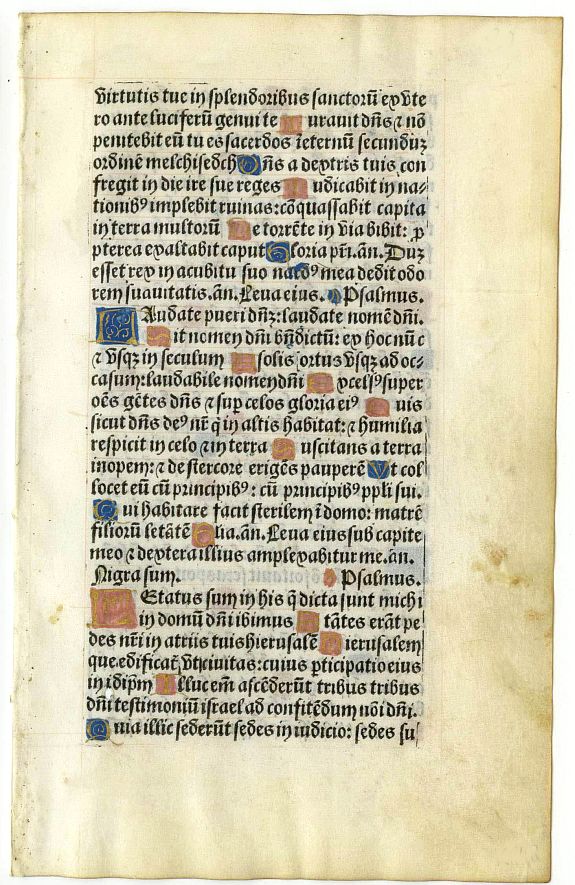 virtutis tue in splendoribus sanctoꝝ ex vte
ro ante luciferū genui te Iurauit dn̄s ⁊ nō
penitebit eū tu es sacerdos īeternū secunduz
ordinē melchisedch Dn̄s a dextris tuis con
fregit in die ire sue reges Iudicabit in na⸗
tionibꝰ implebit ruinas: cōquassabit capita
in terra multorū De torrēte in via bibit: ꝓ
pterea exaltabit caput Gloria pr̄i. an̄. Duz
esset rex in acubitu suo nardꝰ mea dedit odo
rem suauitatis. an̄. Leua eius. Psalmus.
LAudate pueri dn̄z: laudate nomē dn̄i.
Sit nomen dn̄i bn̄dictū: ex hoc nūc
⁊ vsqz in seculum A solis ortus vsqz ad oc⸗
casum: laudabile nomen dn̄i Excelsꝰ super
oēs gētes dn̄s ⁊ sup celos gloria eiꝰ Quis
sicut dn̄s deꝰ nr̄ q̇ in altis habitat: ⁊ humilia
respicit in celo ⁊ in terra Suscitans a terra
inopem: ⁊ de stercore erigēs pauperē Vt col
locet eū cū principibꝰ: cū principibꝰ ppl̄i sui.
Qui habitare facit sterilem ī domo: matrē
filiorū letātē Glia. an̄. Leua eius sub capite
meo ⁊ dextera illius amplexabitur me. an̄.
Nigra sum. Psalmus.
LEtatus sum in his q̄ dicta sunt michi
in domū dn̄i ibimus Stātes erāt pe
des nr̄i in atriis tuis hierusalē Hierusalem
que edificat̄ vt ciuitas: cuius ꝑticipatio eius
in idip̄m Illuc em̄ ascēderūt tribus tribus
dn̄i testimoniū israel ad confitēdum noī dn̄i.
Quia illic sederūt sedes in iudicio: sedes su